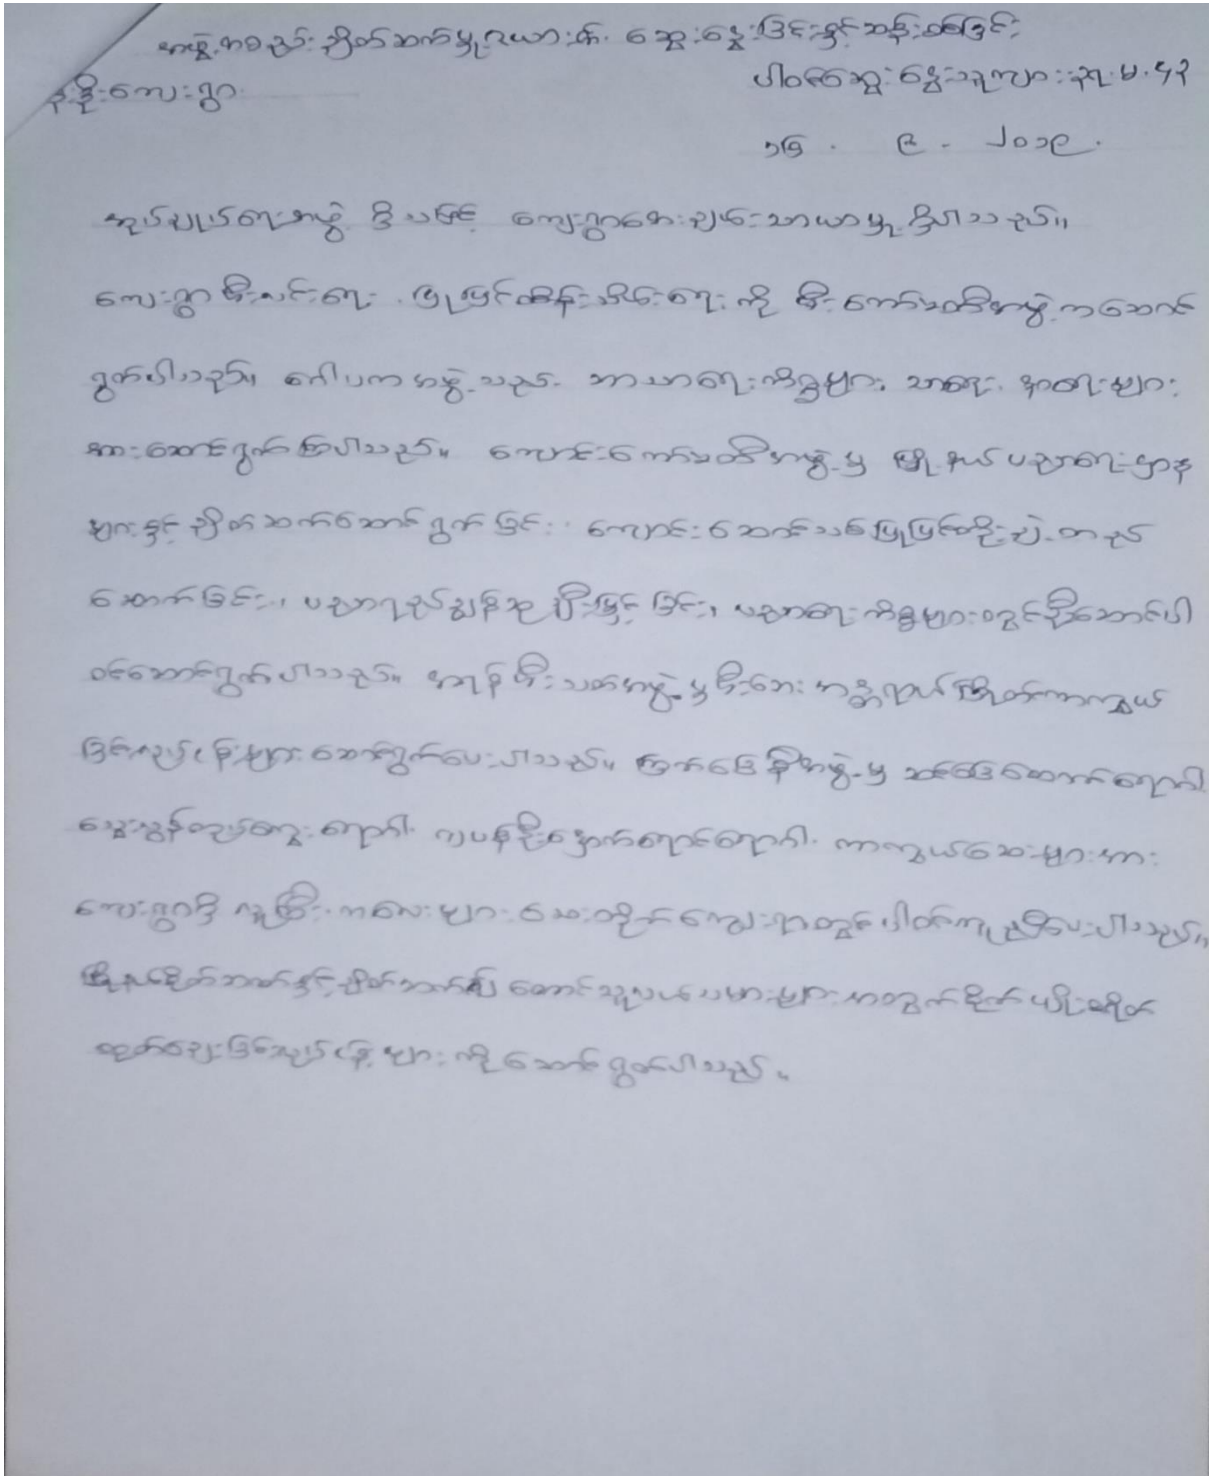 အဖွဲ့အစည်း ချိတ်ဆက်မှုဇယားကို ဆွေးနွေးခြင်းနှင့်ဆန်းစစ်ခြင်း
ကျေးရွာ
ပါဝင်ဆွေးနွေးသူများ
၁၆ . ၉ . ၂၀၁၉ .
အုပ်ချုပ်ရေးအဖွဲ့ ရှိသဖြင့် ကျေးရွာအေးချမ်းသာယာမှု ရှိပါသည်။
ကျေးရွာ မီးလင်းရေး ပြုပြင်ထိန်းသိမ်းရေး ကို မီးကော်မတီအဖွဲ့ ကဆောင်
ရွက်ပါသည်။ ဂေါပကအဖွဲ့သည် ဘာသာရေးကိစ္စများ သာရေး နာရေးများ
အားဆောင်ရွက်ကြပါသည်။ ကျောင်းကော်မတီအဖွဲ့မှ မြို့နယ်ပညာရေးမှူးရုံး
များနှင့် ချိတ်ဆက်ဆောင်ရွက်ခြင်း ကျောင်းဆောင်သစ်ပြုပြင်တိုးချဲ့ တည်
ဆောက်ခြင်း၊ ပညာရည်ချွန်ဆု ချီးမြှင့်ခြင်း၊ ပညာရေးကိစ္စများတွင်ဦးဆောင်ပါ
ဝင်ဆောင်ရွက်ပါသည်။ အရန်မီးသတ်အဖွဲ့မှ မီးဘေးအန္တရာယ်ကြိုတင်ကာကွယ်
ခြင်းလုပ်ငန်းများ ဆောင်ရွက်ပေးပါသည်။ ကြက်ခြေနီအဖွဲ့မှ ဆင်ခြေထောက်ရောဂါ
သွေးလွန်တုပ်ကွေးရောဂါ ဂျပန်ဦးနှောက်ရောင်ရောဂါ ကာကွယ်ဆေးများအား
ကျေးရွာရှိ လူကြီး ကလေးများ ဆေးတိုက်ကျွေးရာတွင် ပါဝင်ကူညီပေးပါသည်။
မြို့နယ်စိုက်ဘဏ်နှင့်ချိတ်ဆက်၍ တောင်သူလယ်သမားများအတွက်စိုက်ပျိုးစရိတ်
ထုတ်ချေးခြင်းလုပ်ငန်းများ ကိုဆောင်ရွက်ပါသည်။